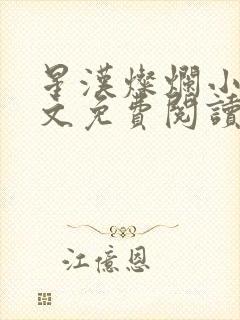 星漢燦爛小
文免費閱讀
江億恩